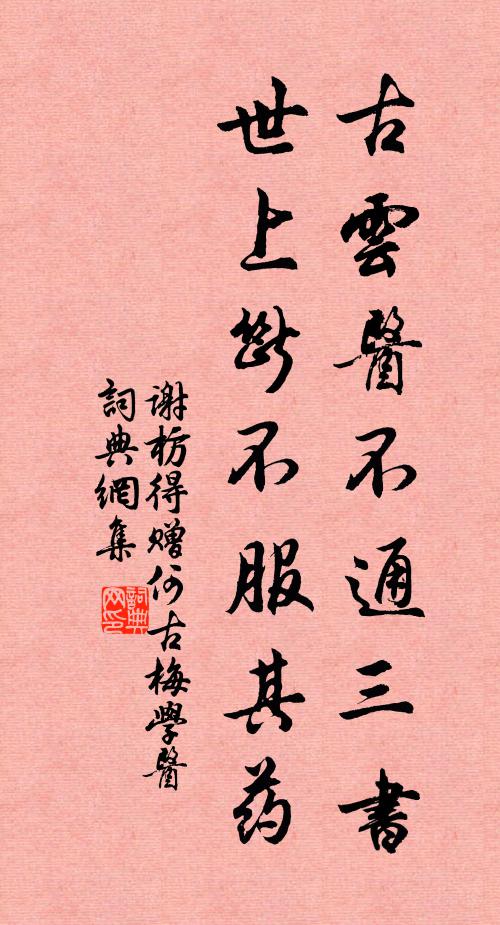 古雲醫不通三書
世上斷不服其药
谢枋得赠何古梅學醫
詞典網集
詞典网印